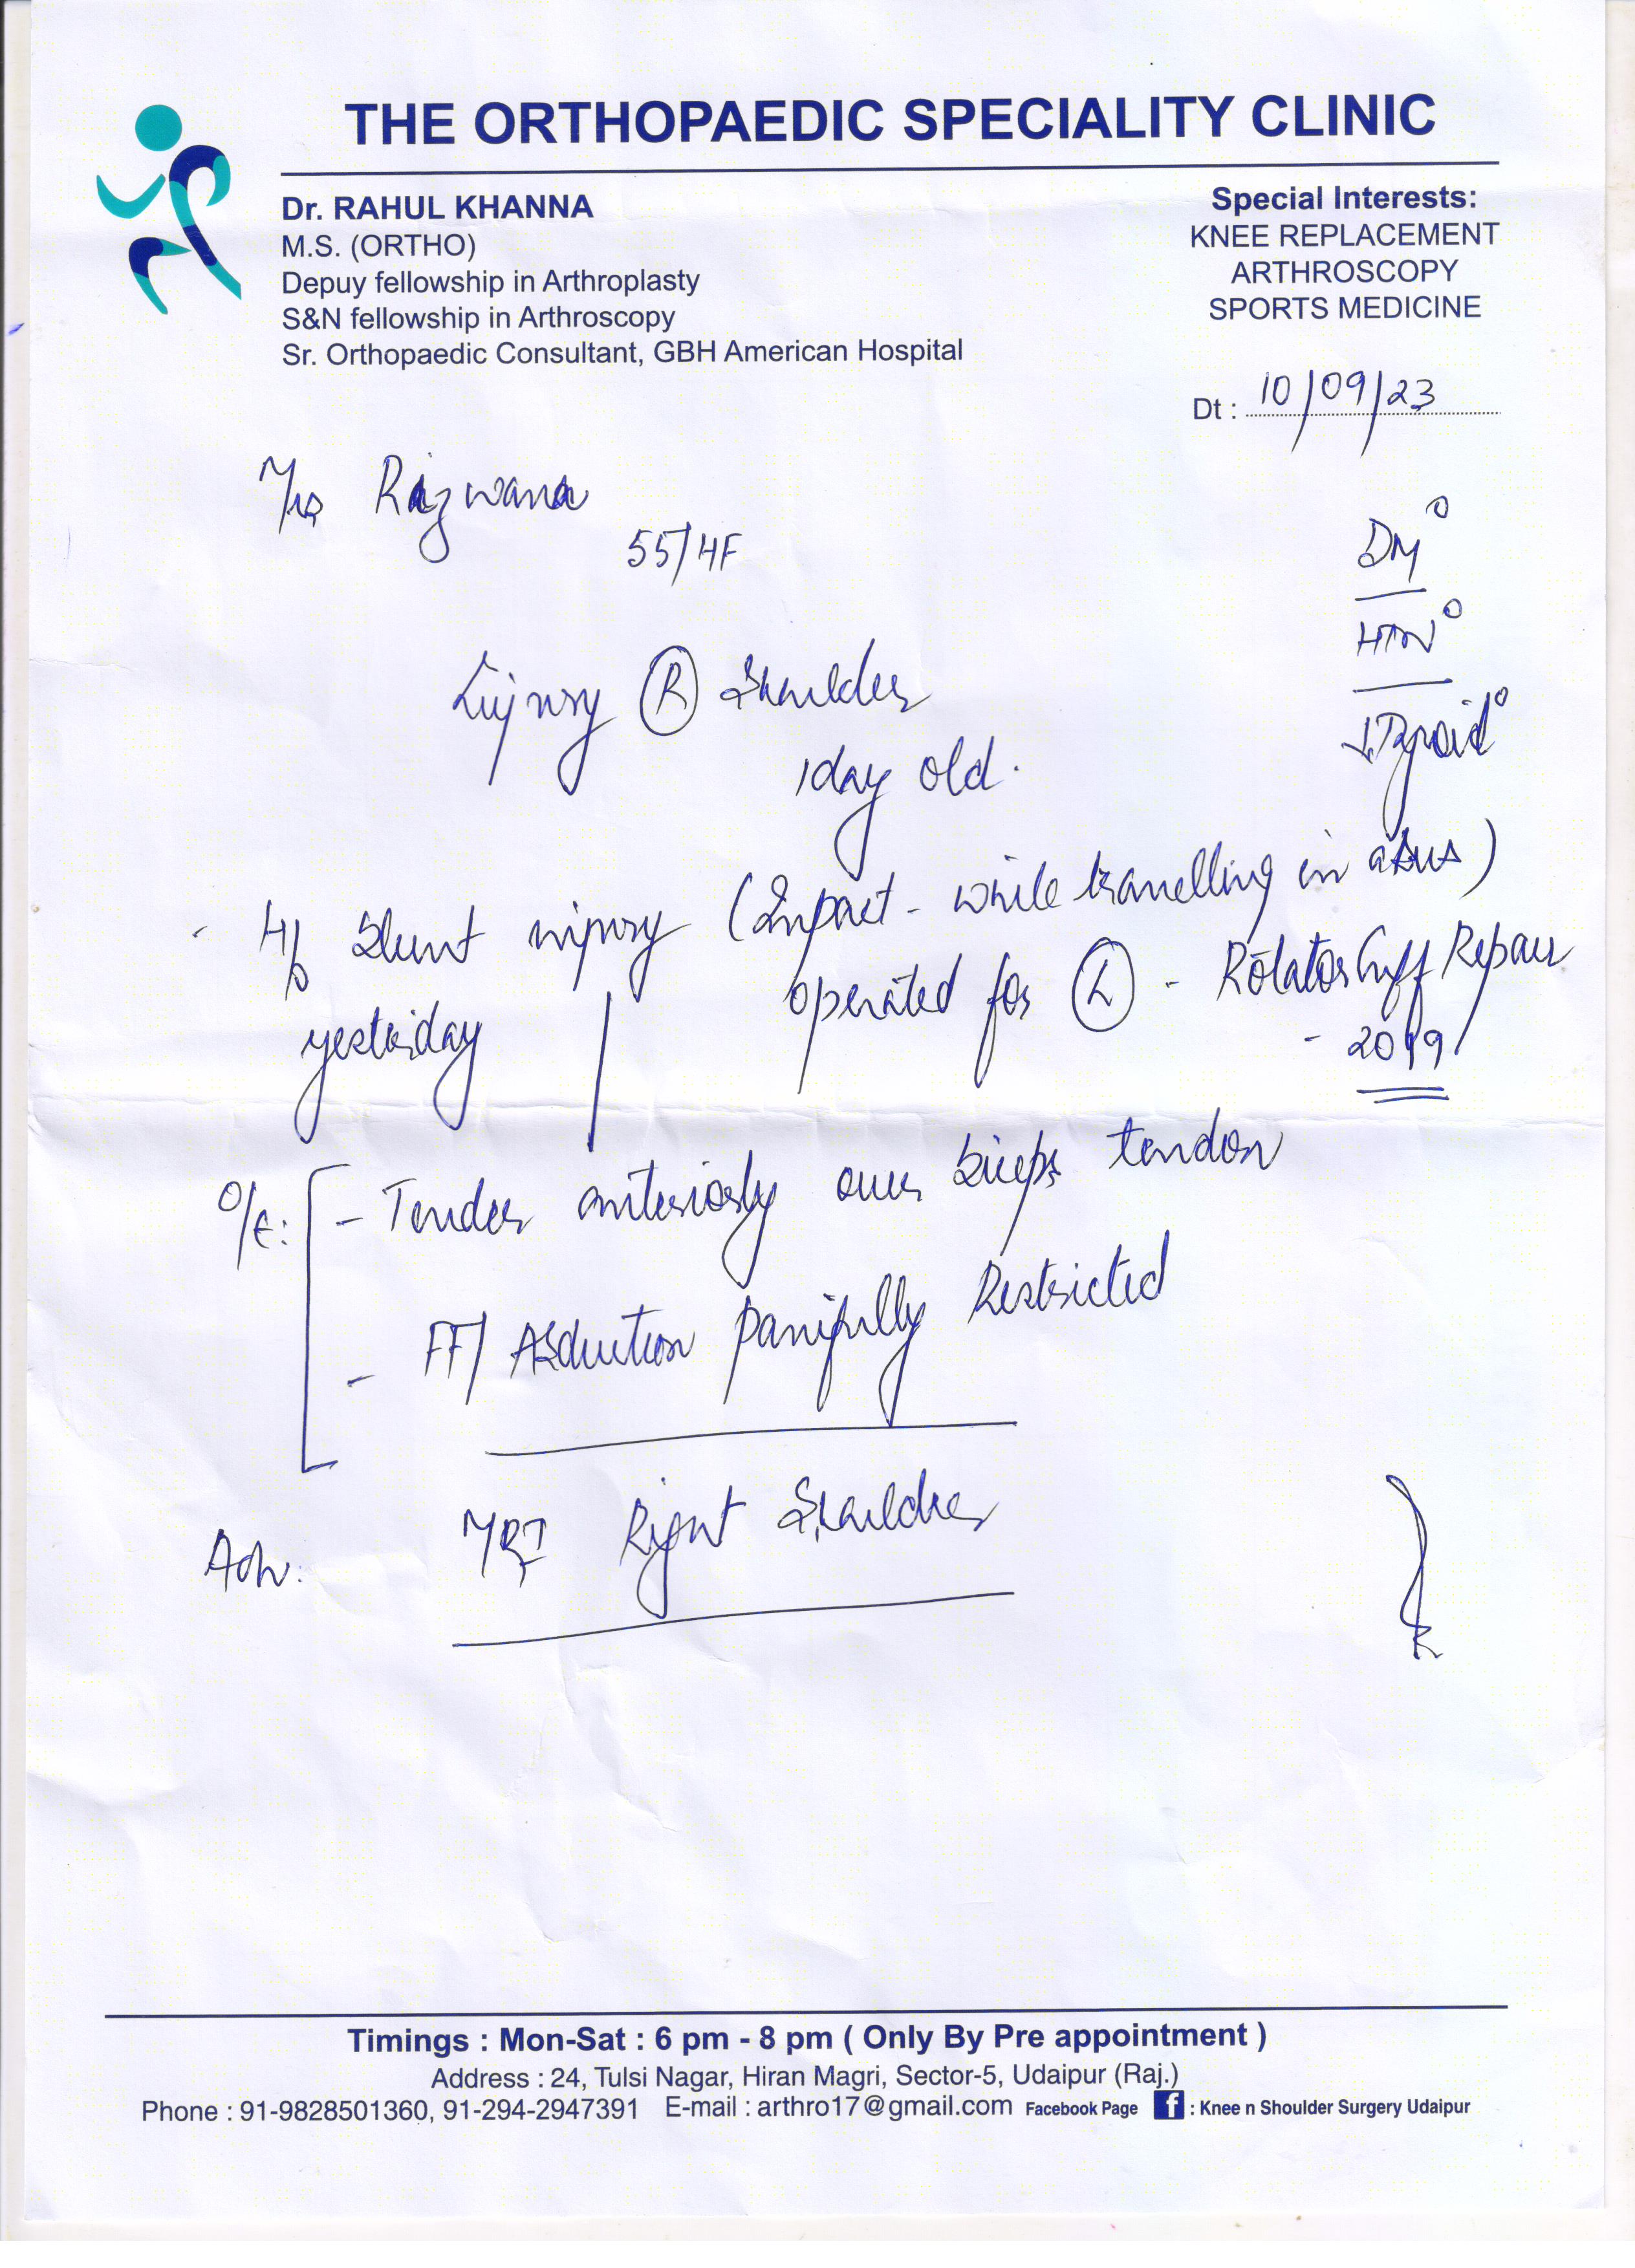 THE ORTHOPAEDIC SPECIALITY CLINIC
Dr. RAHUL KHANNA
M.S. (ORTHO)
Depuy fellowship in Arthroplasty
S&N fellowship in Arthroscopy
Sr. Orthopaedic Consultant, GBH American Hospital
Special Interests:
KNEE REPLACEMENT
ARTHROSCOPY
SPORTS MEDICINE
Dt : 10/09/23
Mrs Rizwana
55/HF
DM°
HTN°
Injury (R) Shoulder
1day old.
- H/o Blunt injury (Impact - while travelling in a bus)
yesterday
operated for (L) - Rotator Cuff Repair
- 2019
O/E:
- Tender anteriorly over biceps tendon
- FF/ Abduction painfully Restricted
Adv: MRI Right Shoulder
Timings : Mon-Sat : 6 pm - 8 pm ( Only By Pre appointment )
Address : 24, Tulsi Nagar, Hiran Magri, Sector-5, Udaipur (Raj.)
Phone : 91-9828501360, 91-294-2947391 E-mail : arthro17@gmail.com Facebook Page f : Knee n Shoulder Surgery Udaipur